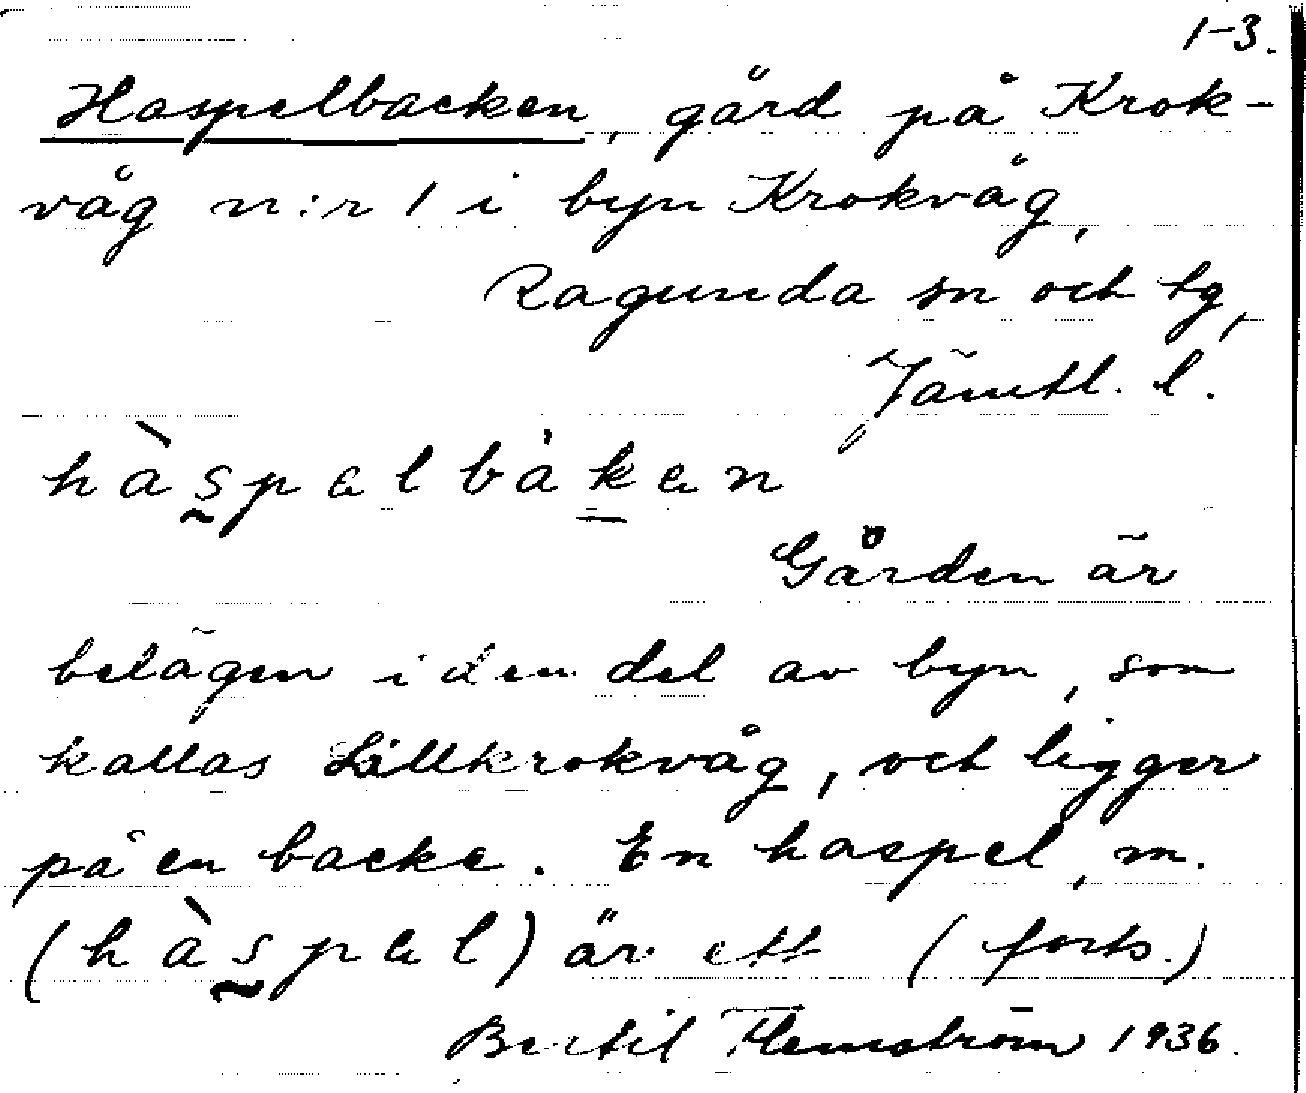 1-3.
Haspelbacken, gård på Krok-
våg n:r 1 i byn Krokvåg,
Ragunda sn och tg,
Jämtl. l.
hàspelbåken
Gården är
belägen i den del av byn, som
kallas Lillkrokvåg, och ligger
på en backe. En haspel, m.
(hàspel) är ett (forts.)
Bertil Flemström 1936.